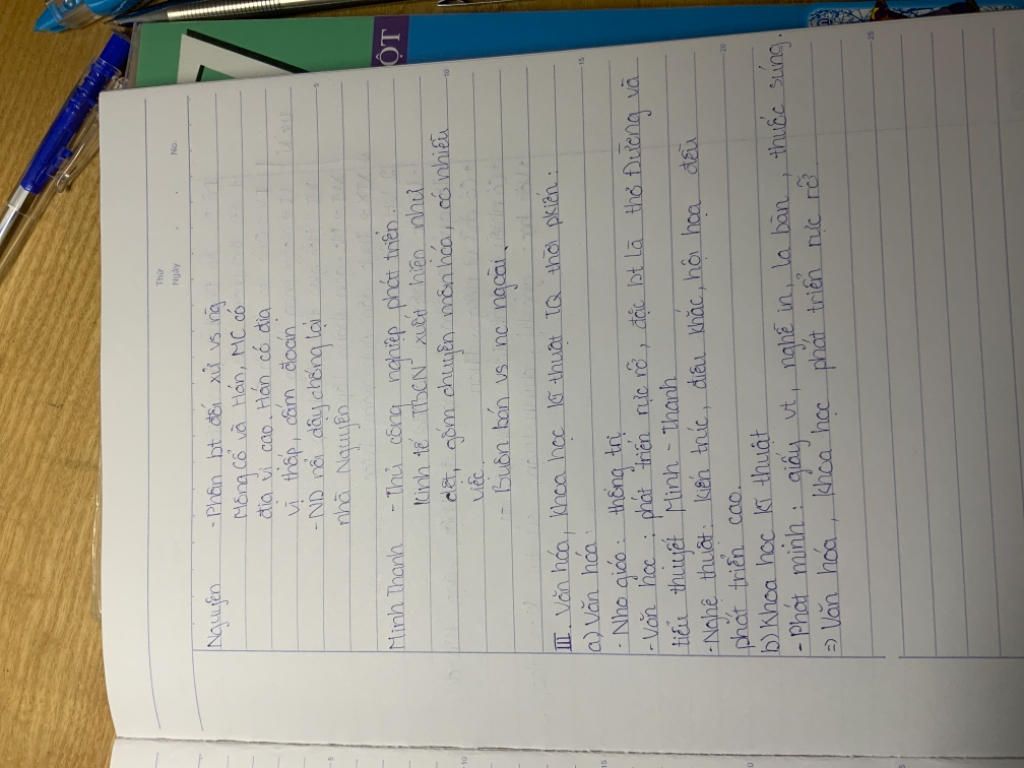 ỘT
Thứ
Ngày
No.
Nguyên - Phân bt đối xử vs ng
Mông Cổ và Hán, MC có
địa vị cao. Hán có địa
vị thấp, cấm đoán
- ND nổi dậy chống lại
nhà Nguyên
5
Minh Thanh - Thủ công nghiệp phát triển.
Kinh tế TBCN xuất hiện như
dệt, gốm chuyên môn hóa, có nhiều
việc
- Buôn bán vs nc ngoài
10
III. Văn hóa, khoa học kĩ thuật TQ thời pkiến:
a) Văn hóa:
- Nho giáo: thống trị
- Văn học: phát triển rực rỡ, đặc bt là thơ Đường và
tiểu thuyết Minh - Thanh
- Nghệ thuật: kiến trúc, điêu khắc, hội họa đều
phát triển cao.
b) Khoa học kĩ thuật
- Phát minh: giấy vt, nghề in, la bàn, thuốc súng.
=> Văn hóa, khoa học phát triển rực rỡ
15
20
25